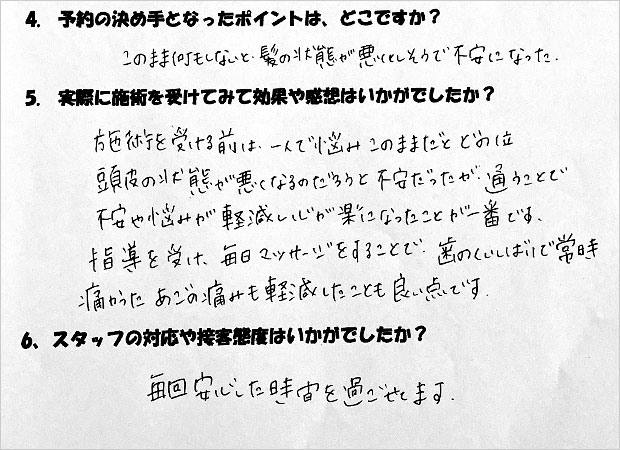 4. 予約の決め手となったポイントは、どこですか？
このまま何もしないと、髪の状態が悪化しそうで不安になった.
5. 実際に施術を受けてみて効果や感想はいかがでしたか？
施術を受ける前は、一人で悩みこのままだとどの位
頭皮の状態が悪くなるのだろうと不安だったが、通うことで
不安や悩みが軽減し心が楽になったことが一番です、
指導を受け、毎日マッサージをすることで、歯のくいしばりで常時
痛かったあごの痛みも軽減したことも良い点です.
6、スタッフの対応や接客態度はいかがでしたか？
毎回安心した時間を過ごせてます.